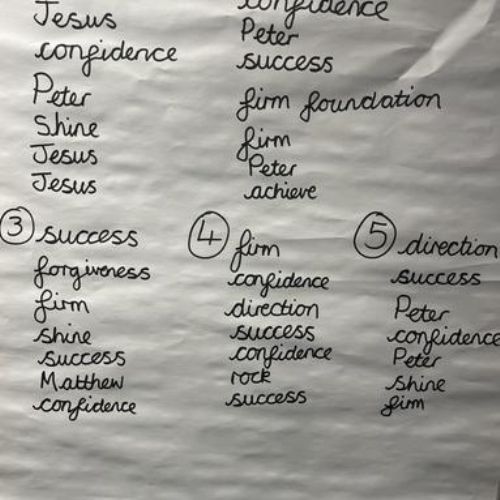 Jesus
confidence
Peter
Shine
Jesus
Jesus
confidence
Peter
success
firm foundation
firm
Peter
achieve
3 success
forgiveness
firm
shine
success
Matthew
confidence
4 firm
confidence
direction
success
confidence
rock
success
5 direction
success
Peter
confidence
Peter
shine
firm